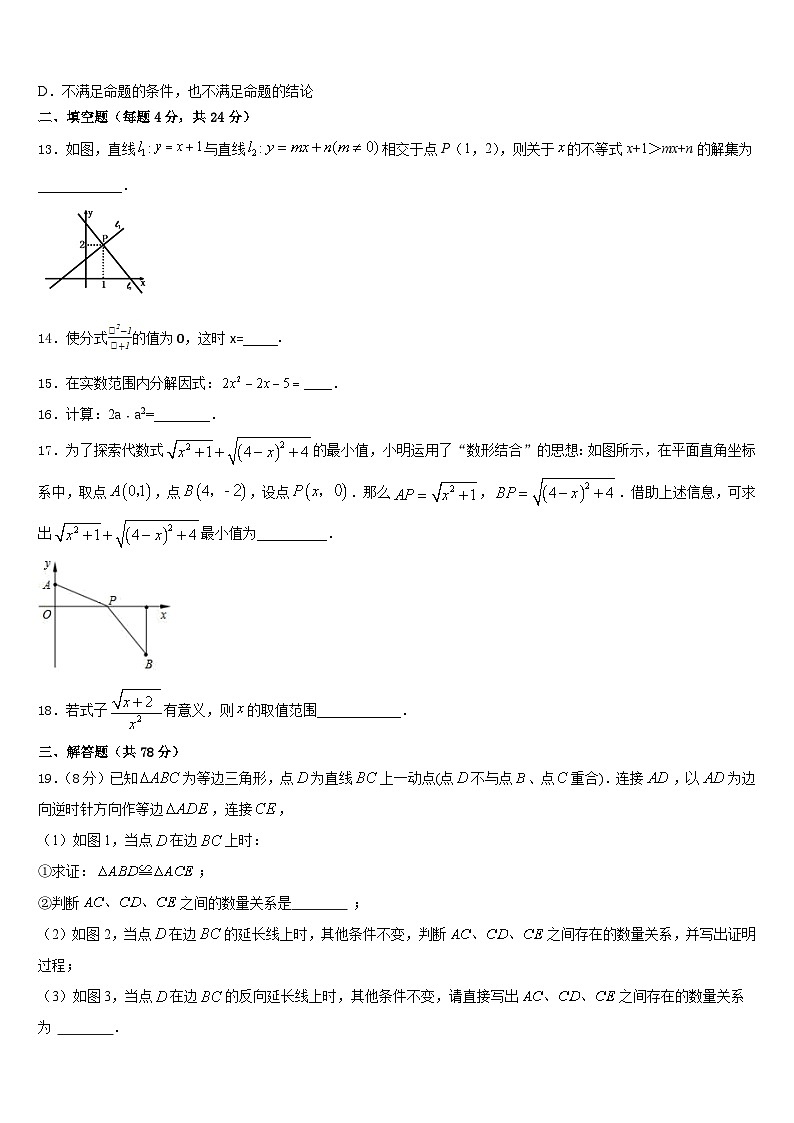 D．不满足命题的条件，也不满足命题的结论
二、填空题（每题 4 分，共 24 分）
13．如图，直线 l₁ : y = x + 1 与直线 l₂ : y = mx + n(m ≠ 0) 相交于点 P（1，2），则关于 x 的不等式 x+1＞mx+n 的解集为
____________．
y
P
2
1
x
14．使分式 (□²−1)/(□+1) 的值为 0，这时 x=_____．
15．在实数范围内分解因式：2x² − 2x − 5 = ____．
16．计算：2a · a²=________．
17．为了探索代数式 √(x²+1) + √((4−x)²+4) 的最小值，小明运用了“数形结合”的思想：如图所示，在平面直角坐标
系中，取点 A(0,1)，点 B(4，-2)，设点 P(x，0)．那么 AP = √(x²+1)，BP = √((4−x)²+4)．借助上述信息，可求
出 √(x²+1) + √((4−x)²+4) 最小值为__________．
y
A
O
P
x
B
18．若式子 √(x+2)/x² 有意义，则 x 的取值范围____________．
三、解答题（共 78 分）
19．（8 分）已知 ΔABC 为等边三角形，点 D 为直线 BC 上一动点(点 D 不与点 B 、点 C 重合)．连接 AD ，以 AD 为边
向逆时针方向作等边 △ADE ，连接 CE，
（1）如图 1，当点 D 在边 BC 上时：
①求证：△ABD≌△ACE ；
②判断 AC、CD、CE 之间的数量关系是________ ；
（2）如图 2，当点 D 在边 BC 的延长线上时，其他条件不变，判断 AC、CD、CE 之间存在的数量关系，并写出证明
过程；
（3）如图 3，当点 D 在边 BC 的反向延长线上时，其他条件不变，请直接写出 AC、CD、CE 之间存在的数量关系
为 ________．